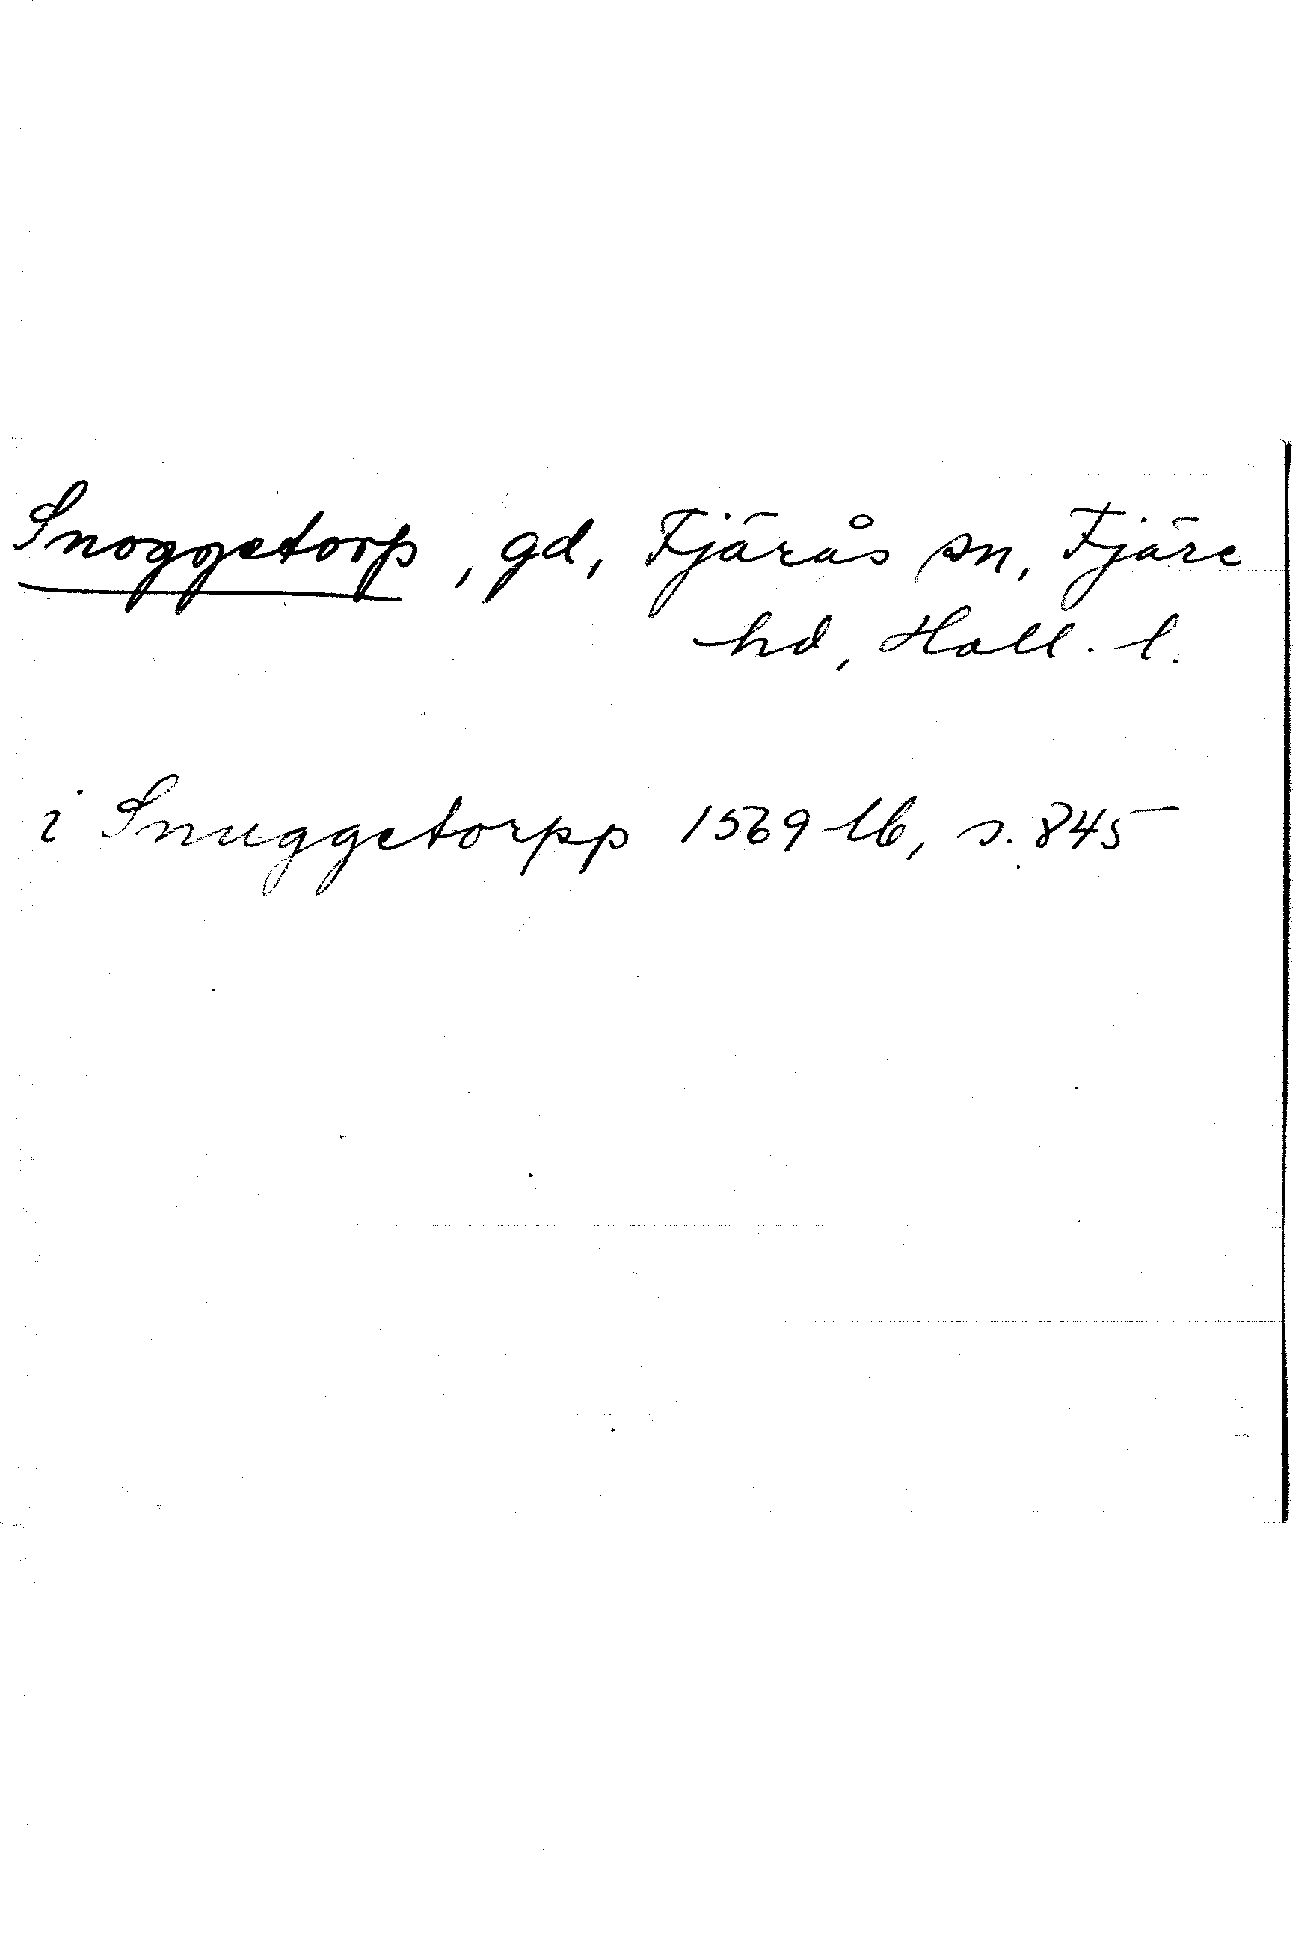 Snoggetorp, gd, Fjärås sn, Fjäre
hd, Hall. l.
i Snuggetorpp 1569 lb, s. 845